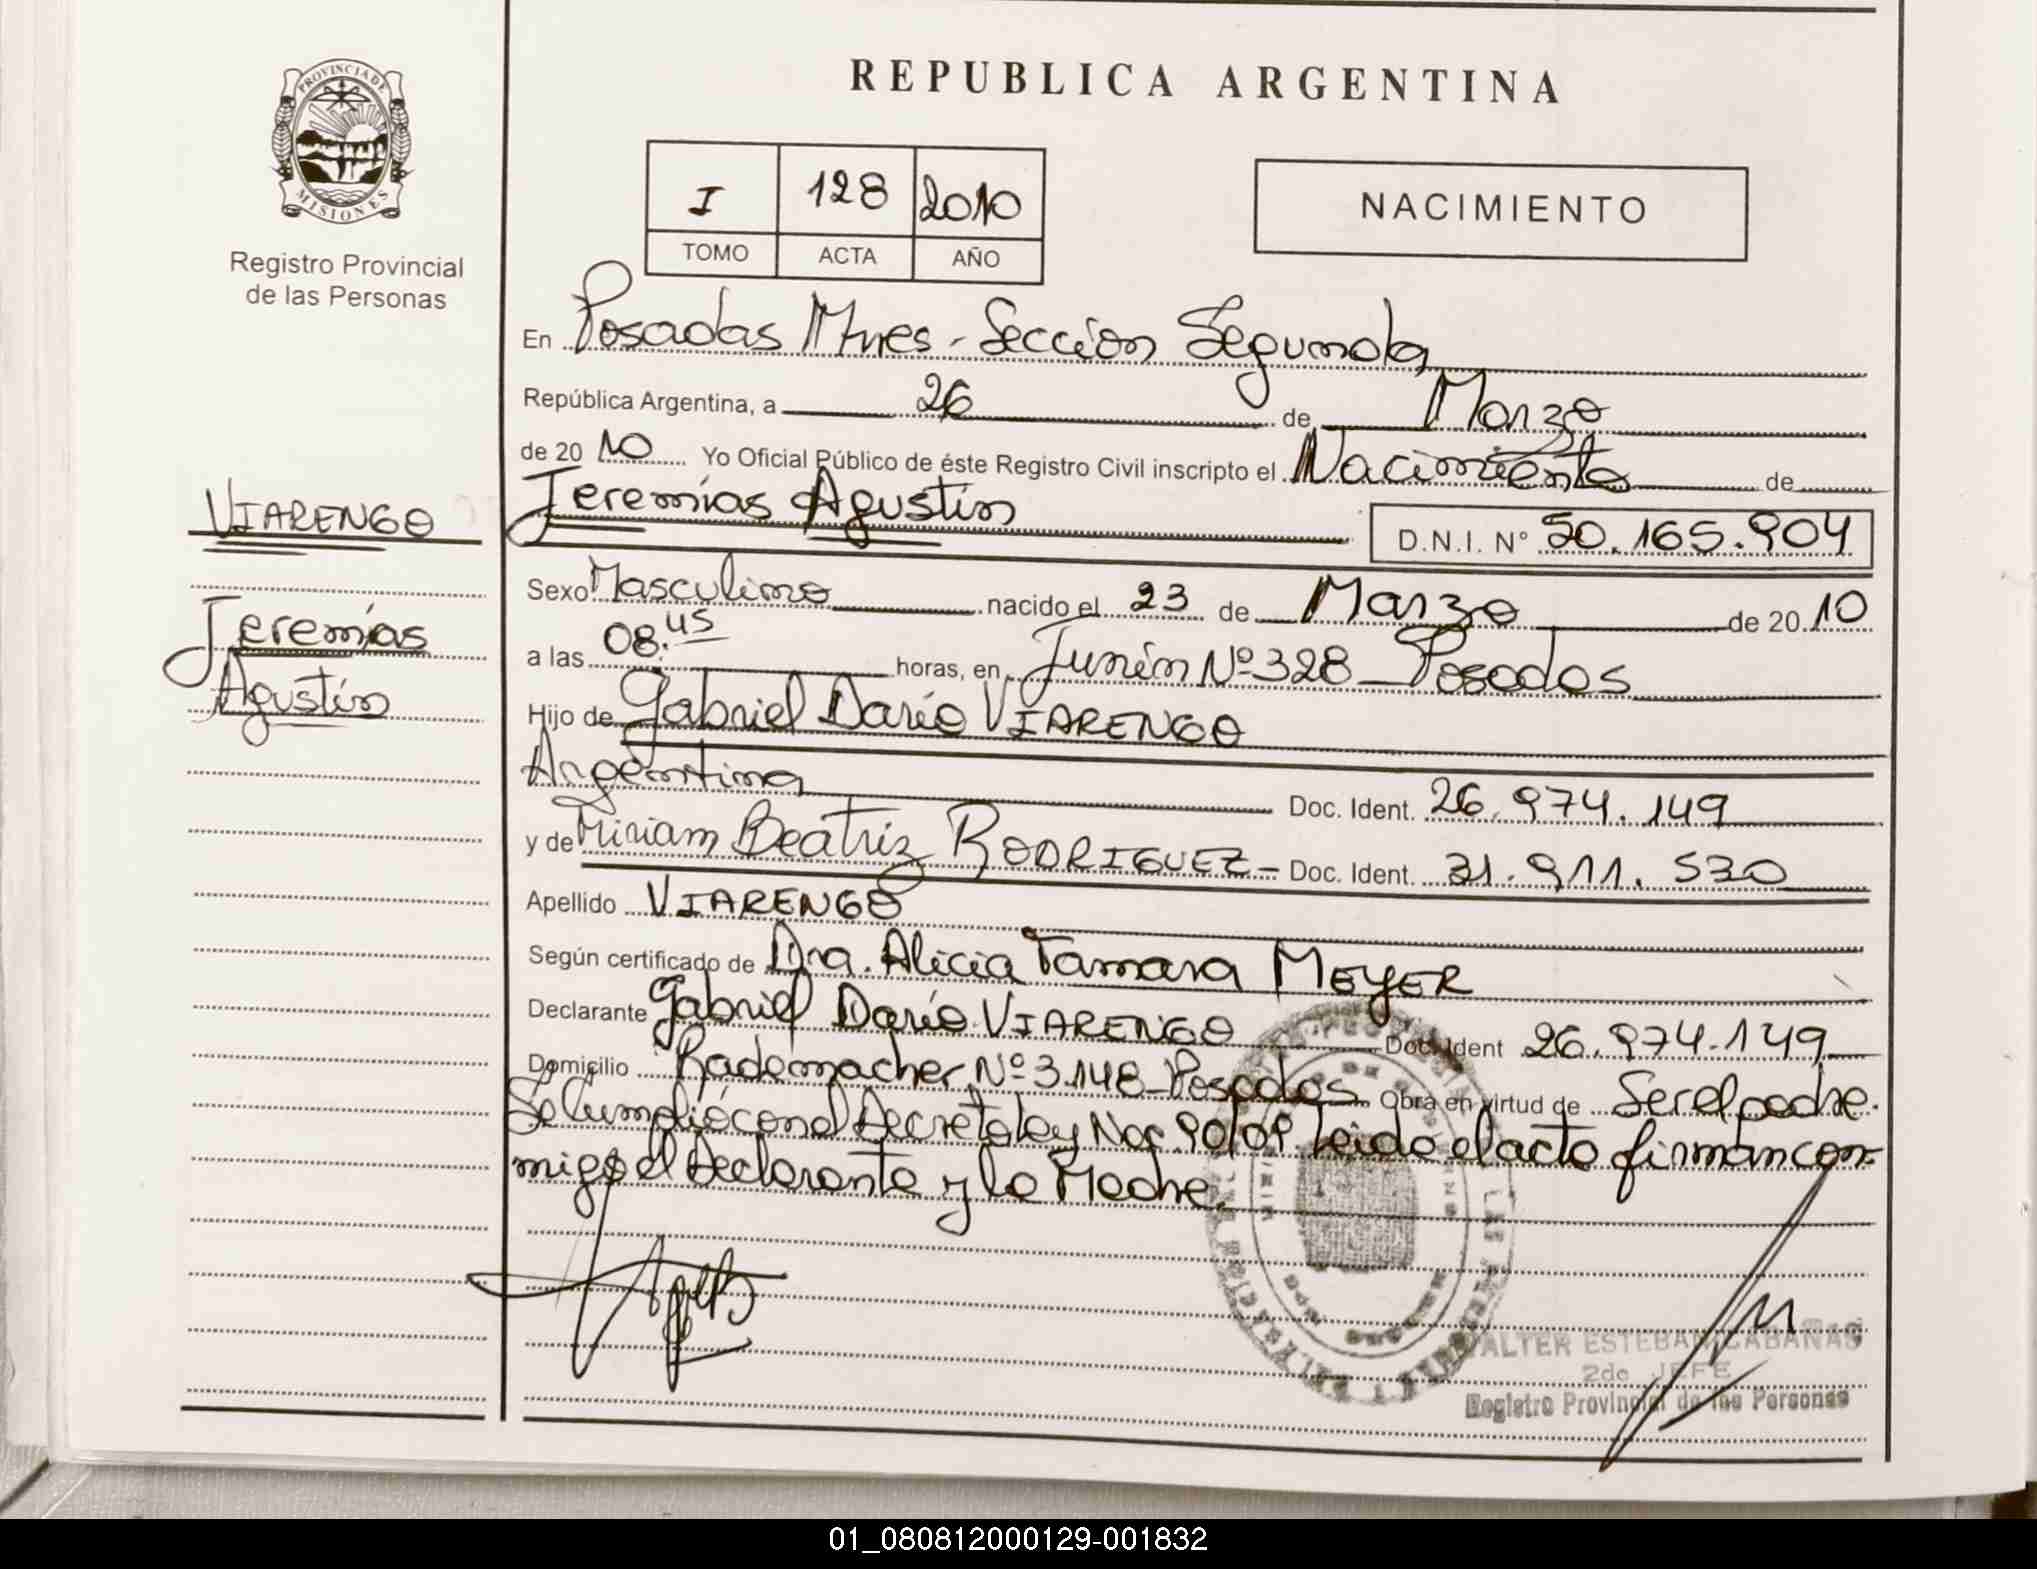 PROVINCIA DE
MISIONES
Registro Provincial
de las Personas
VIARENGO
Jeremías
Agustín
REPUBLICA ARGENTINA
I 128 2010
TOMO ACTA AÑO
NACIMIENTO
En Posadas Mnes - Sección Segunda
República Argentina, a 26 de Marzo
de 2010 Yo Oficial Público de éste Registro Civil inscripto el Nacimiento de
Jeremías Agustín D.N.I. N° 50.165.904
Sexo Masculino nacido el 23 de Marzo de 2010
a las 08.45 horas, en Junín Nº 328 - Posadas
Hijo de Gabriel Darío VIARENGO
Argentina Doc. Ident. 26.974.149
y de Miriam Beatriz RODRIGUEZ - Doc. Ident. 31.911.530
Apellido VIARENGO
Según certificado de Dra. Alicia Tamara MEYER
Declarante Gabriel Darío VIARENGO Doc. Ident 26.974.149
Domicilio Rademacher Nº 3.148 - Posadas Obra en virtud de Ser el padre.
Se Cumplió con el Decreto ley Nac. 90/09. Leido el acta firman con-
migo el Declarante y la Madre.
WALTER ESTEBAN CABAÑAS
2do JEFE
Registro Provincial de las Personas
01_080812000129-001832